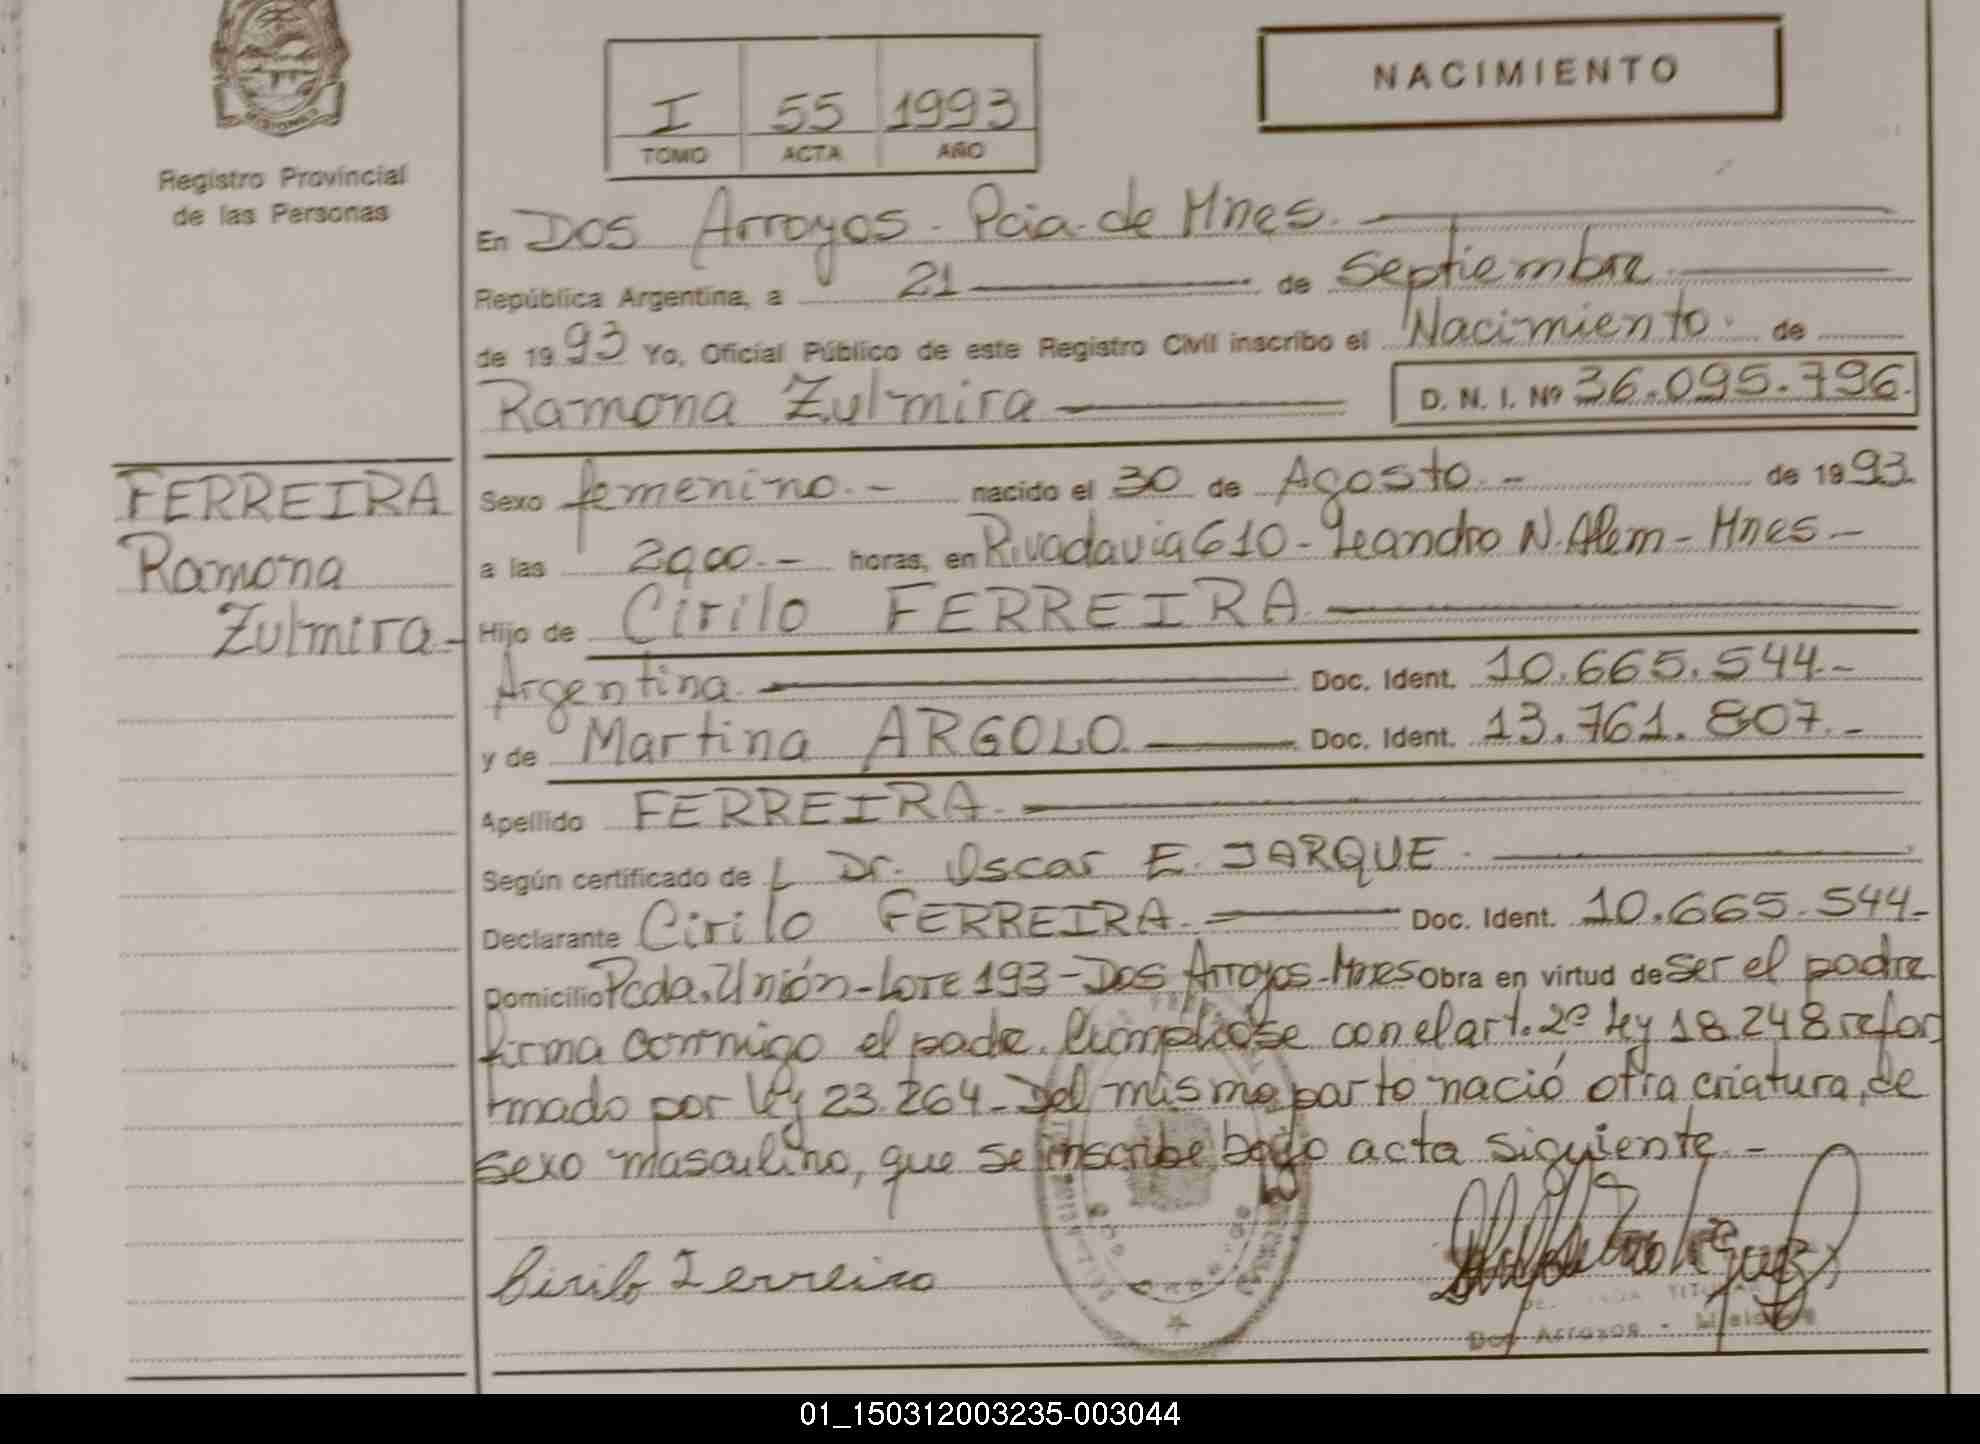 MISIONES
Registro Provincial
de las Personas
I 55 1993
TOMO ACTA AÑO
NACIMIENTO
En Dos Arroyos - Pcia. de Mnes.
República Argentina, a 21 de Septiembre
de 1993 Yo, Oficial Público de este Registro Civil inscribo el Nacimiento de
Ramona Zulmira D. N. I. Nº 36.095.796.
FERREIRA
Ramona
Zulmira.-
Sexo femenino.- nacido el 30 de Agosto.- de 1993.
a las horas, en Rivadavia 610 - Leandro N. Alem - Mnes -
Hijo de Cirilo FERREIRA
Argentina. Doc. Ident. 10.665.544.-
y de Martina ARGOLO Doc. Ident. 13.761.807.-
Apellido FERREIRA.
Según certificado de Dr. Oscar E. JARQUE.
Declarante Cirilo FERREIRA. Doc. Ident. 10.665.544-
Domicilio Pcda. Unión - Lote 193 - Dos Arroyos - Mnes Obra en virtud de ser el padre
firma conmigo el padre. Cumpliose con el art. 2º Ley 18.248 refor
mado por Ley 23.264 - Del mismo parto nació otra criatura, de
sexo masculino, que se inscribe bajo acta siguiente.-
Cirilo Ferreira
Dos Arroyos - Misiones
01_150312003235-003044